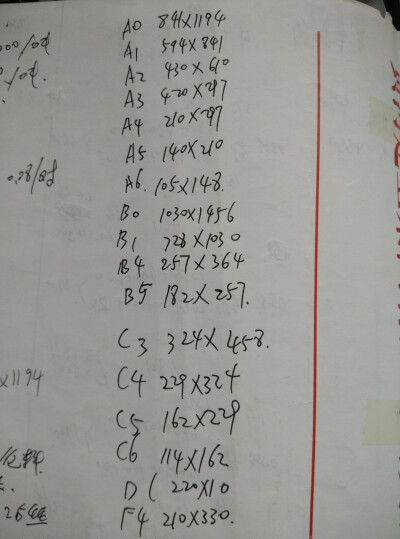 A0 841X1194
A1 594X841
A2 430X610
A3 420X297
A4 210X297
A5 140X210
A6. 105X148.
B0 1030X1456
B1 728X1030
B4 257X364
B5 182X257.
0.28/
C3 324X458.
X1194
C4 229X324
C5 162X229
C6 114X162
DL 220X10
F4 210X330.